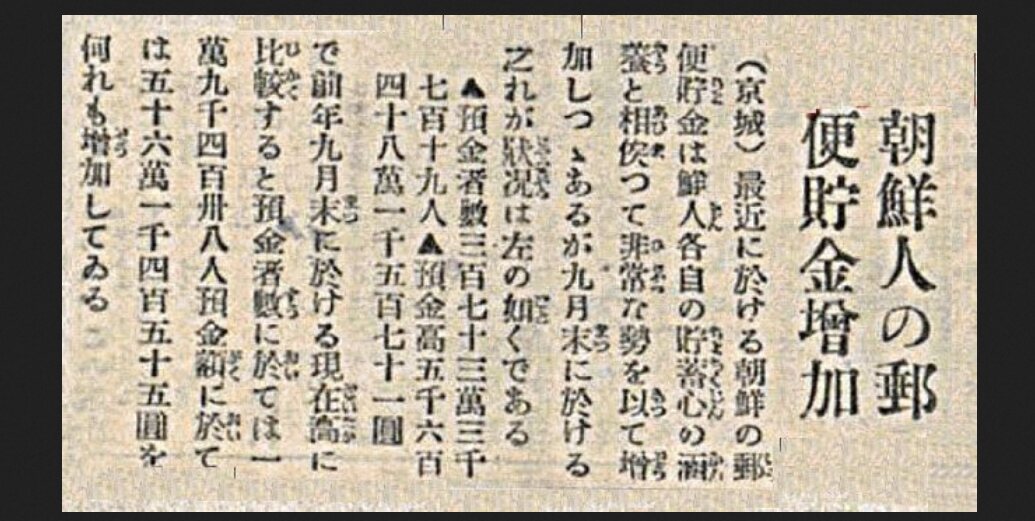 朝鮮人の郵
便貯金增加
(京城)最近に於ける朝鮮の郵
便貯金は鮮人各自の貯蓄心の涵
養と相俟つて非常な勢を以て增
加しつゝあるが九月末に於ける
之れが狀況は左の如くである
▲預金者數三百七十三萬三千
七百十九人▲預金高五千六百
四十八萬一千五百七十一圓
で前年九月末に於ける現在高に
比較すると預金者數に於ては一
萬九千四百卅八人預金額に於て
は五十六萬一千四百五十五圓を
何れも增加してゐる